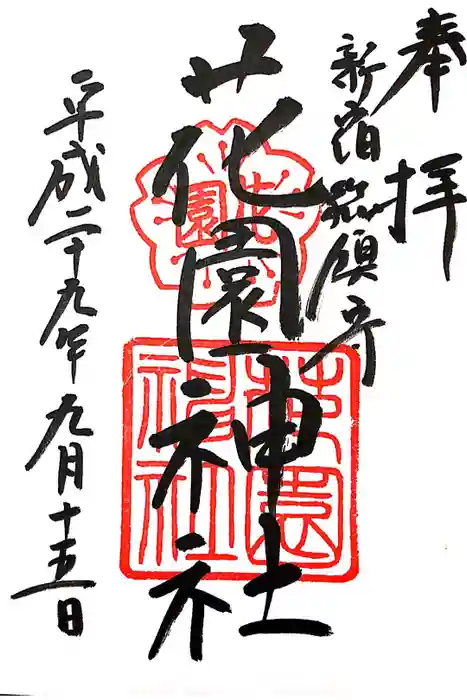 奉拝
新宿総鎮守
花園神社
平成二十九年九月十五日
花園
花園
神社